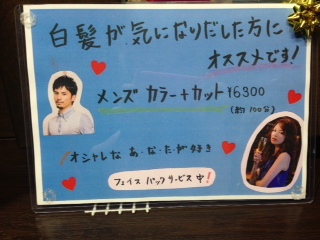 白髪が気になりだした方に
オススメです!
メンズ カラー+カット ¥6300
(約100分)
オシャレな あ・な・たが好き
フェイスパックサービス中!